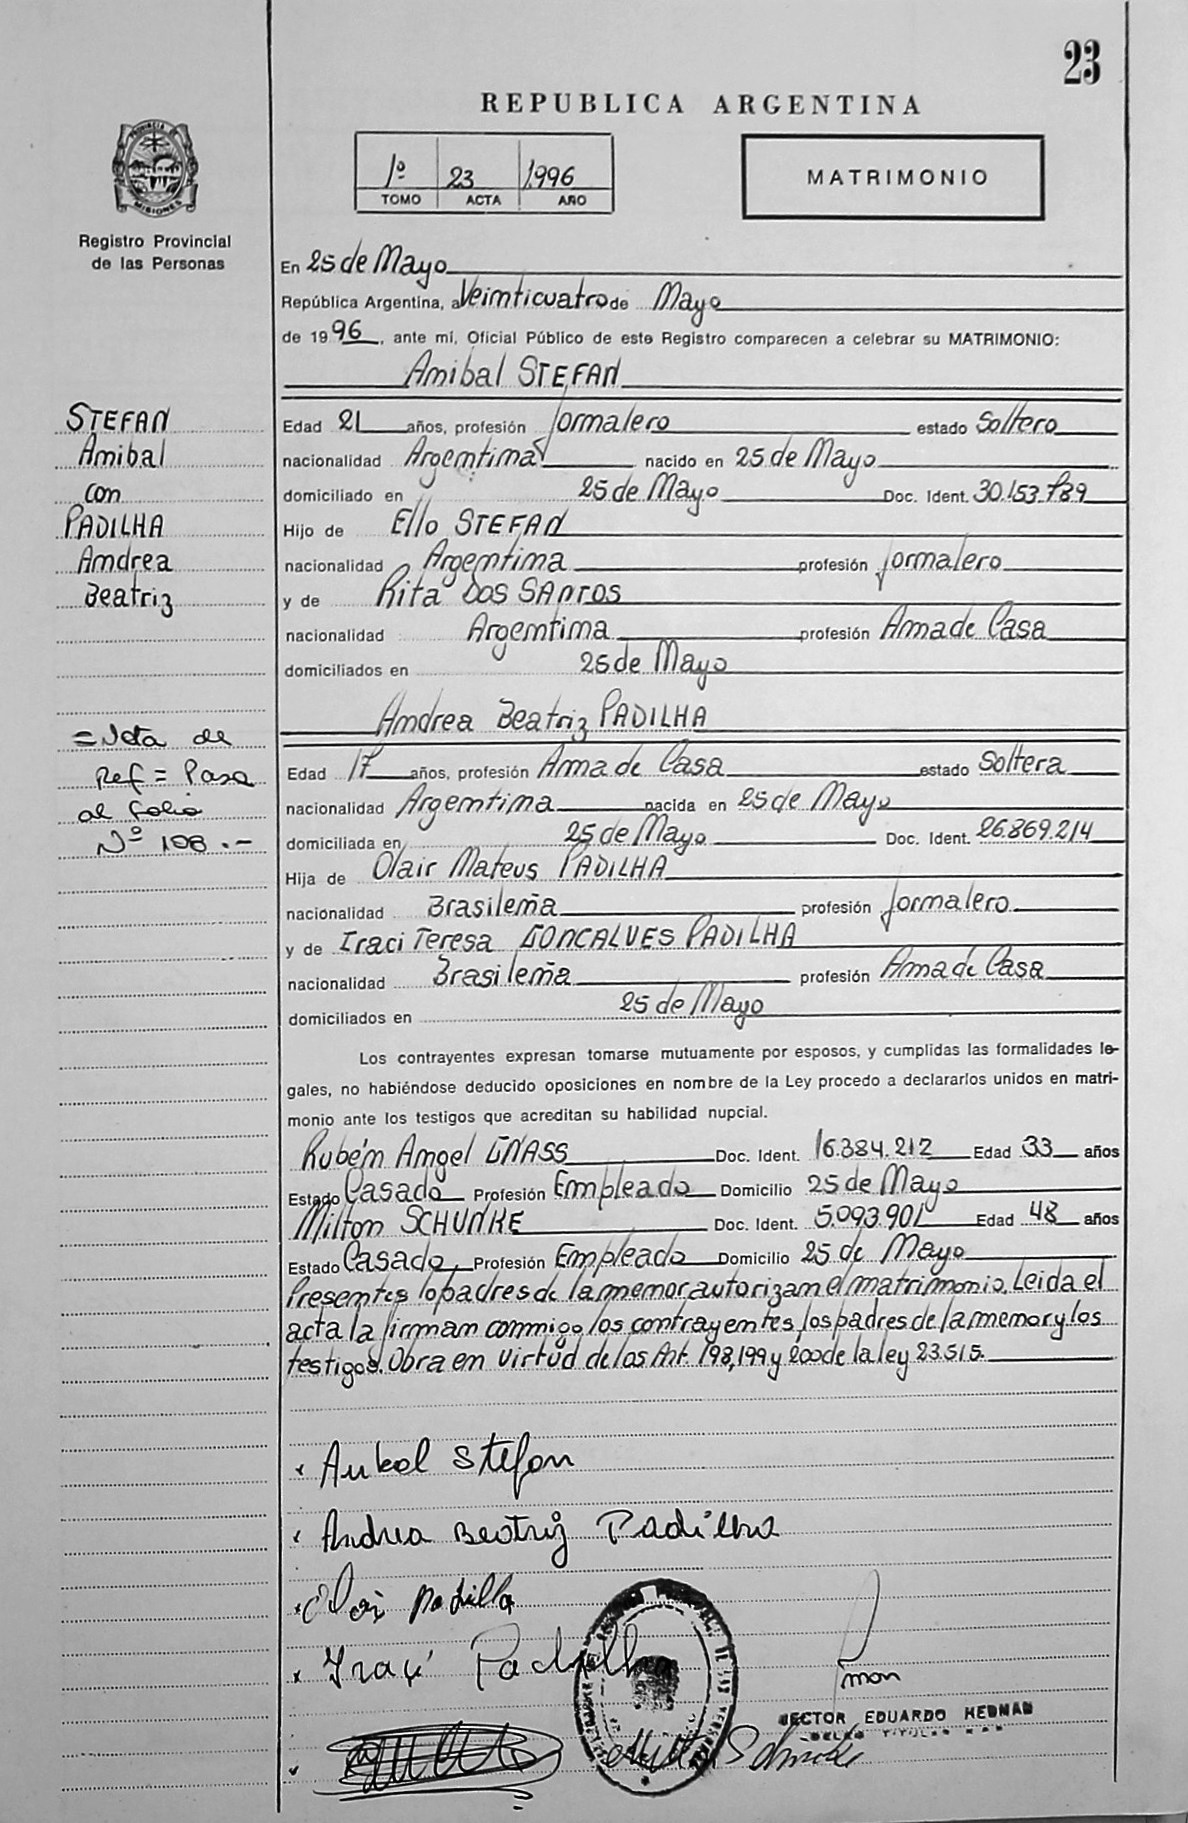 23
REPUBLICA ARGENTINA
PROVINCIA DE MISIONES
1º 23 1996
TOMO ACTA AÑO
MATRIMONIO
Registro Provincial
de las Personas
En 25 de Mayo
República Argentina, a Veinticuatro de Mayo
de 1996, ante mi, Oficial Público de este Registro comparecen a celebrar su MATRIMONIO:
Anibal STEFAN
Edad 21 años, profesión Jornalero estado Soltero
nacionalidad Argentina nacido en 25 de Mayo
domiciliado en 25 de Mayo Doc. Ident. 30.153.789
Hijo de Ello STEFAN
nacionalidad Argentina profesión Jornalero
y de Rita DOS SANTOS
nacionalidad Argentina profesión Ama de Casa
domiciliados en 25 de Mayo
Andrea Beatriz PADILHA
Edad 17 años, profesión Ama de Casa estado Soltera
nacionalidad Argentina nacida en 25 de Mayo
domiciliada en 25 de Mayo Doc. Ident. 26.869.214
Hija de Olair Mateus PADILHA
nacionalidad Brasileña profesión Jornalero
y de Iraci Teresa GONCALVES PADILHA
nacionalidad Brasileña profesión Ama de Casa
domiciliados en 25 de Mayo
Los contrayentes expresan tomarse mutuamente por esposos, y cumplidas las formalidades le-
gales, no habiéndose deducido oposiciones en nombre de la Ley procedo a declararlos unidos en matri-
monio ante los testigos que acreditan su habilidad nupcial.
Rubén Angel GNASS Doc. Ident. 16.384.212 Edad 33 años
Estado Casado Profesión Empleado Domicilio 25 de Mayo
Milton SCHUNKE Doc. Ident. 5.093.901 Edad 48 años
Estado Casado, Profesión Empleado Domicilio 25 de Mayo
Presentes lo padres de la menor autorizan el matrimonio. Leida el
acta la firman conmigo los contrayentes, los padres de la menor y los
testigos. Obra en Virtud de los Art. 198, 199 y 200 de la ley 23.515.
STEFAN
Anibal
con
PADILHA
Andrea
Beatriz
= Nota de
Ref = Pasa
al folio
Nº 108.-
Anibal Stefan
Andrea Beatriz Padilha
Olair Padilha
Iraçi Padilha
HECTOR EDUARDO HEDMAN
Milton Schunke